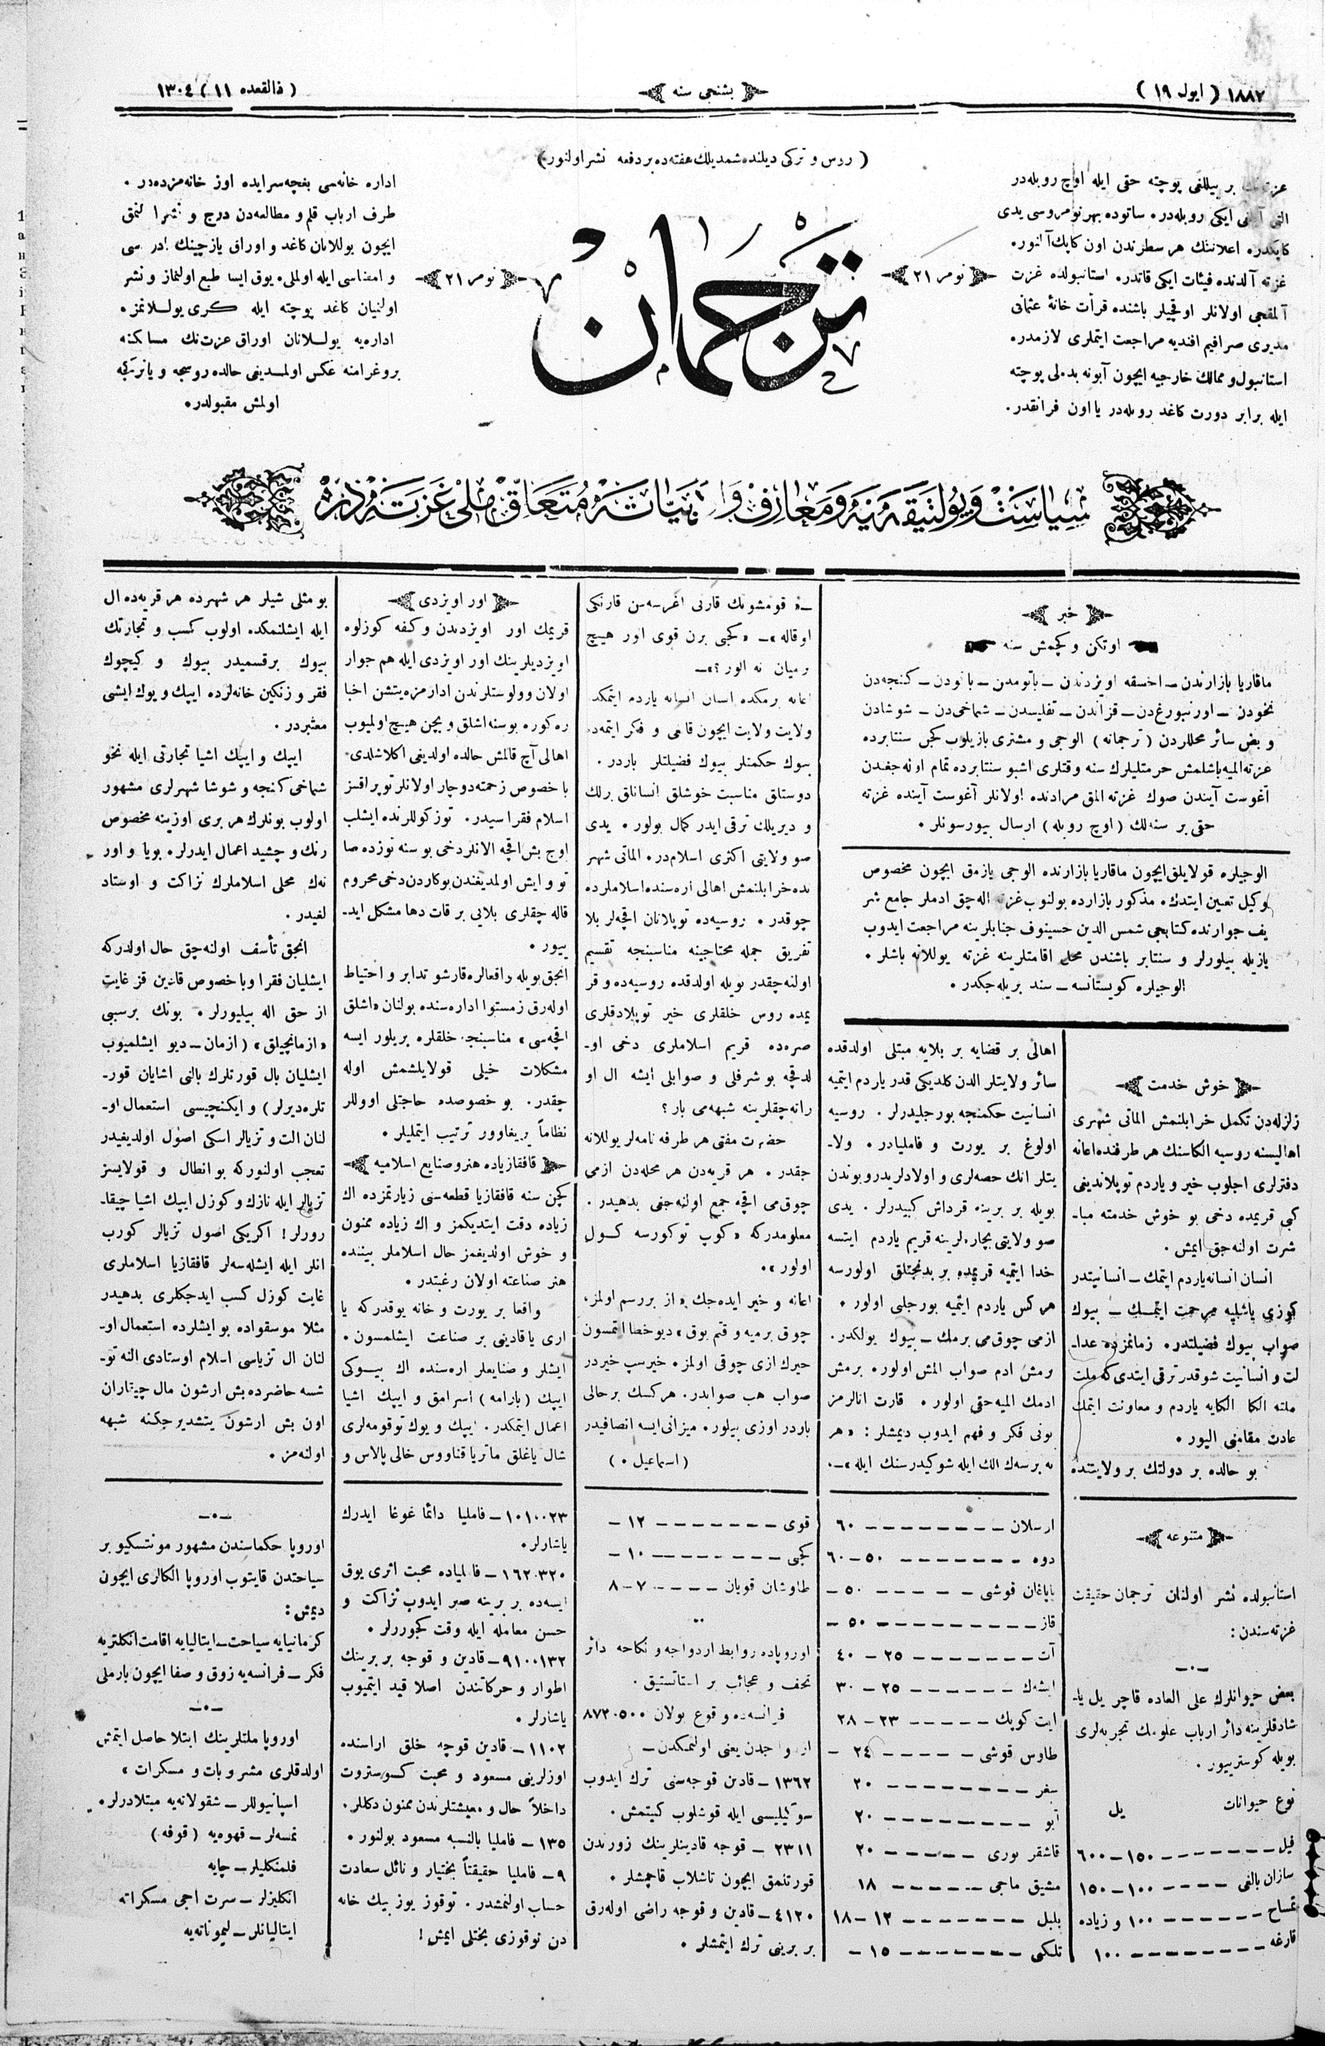 ١٨٨٧ ( ايول ١٩ )
بشنجى سنه
( ذالقعده ١١ ) ١٣٠٤
( روس و تركى ديلنده شمديلك هفته ده بر دفعه نشر اولنور )
بر ييللغى پوچته حقى ايله اوچ روبله در
آيلغى ايكى روبله در. ساتوده بهر نومروسى يدى
كاپكدر. اعلاننك هر سطرندن اون كاپك آلنور.
غزته آلدنده فيئات ايكى قاتدر. استانبولده غزت
آلمقجى اولانلر اوقجيلر باشنده قرأت خانۀ عثمانى
مديرى صرافيم افنديه مراجعت ايتملرى لازمدر.
استانبول و ممالك خارجيه ايچون آبونه بدلى پوچته
ايله برابر دورت كاغد روبله در يا اون فرانقدر.
نومر ٢١
ترجمان
نومر ٢١
اداره خانه سى بغچه سرايده اوز خانه مزده در.
طرف ارباب قلم و مطالعه دن درج و نشرا لنمق
ايچون بوللانان كاغد و اوراق يازچينك ادرسى
و امضاسى ايله اولملى. يوق ايسا طبع اولنماز و نشر
اولنيان كاغد پوچته ايله كرى يوللانمز.
اداره يه يوللانان اوراق عزتنك مسلكنه
پروغرامنه عكس اولمديغى حالده روسجه و يا تركيه
اولمش مقبولدر.
سياست و پولتيقه مدنيه و معارف و ادبياته متعلق ملى غزته مزدر
خبر
اوتكن و كچمش سنه
ماقاريا بازارندن ــ اخسقه اويزدندن ــ باتومدن ــ باكودن ــ كنجه دن
نخودن ــ اورنبورغدن ــ قزاندن ــ تفليسدن ــ شماخى دن ــ شوشادن
و بعض سائر محللردن ( ترجمانه ) الوجى و مشترى يازيلوب كچن سنتابرده
غزته الميه باشلمش حرمتليلرك سنه وقتلرى اشبو سنتابرده تمام اوله جغندن
آغوست آيندن صوك غزته المق مرادنده اولانلر آغوست آينده غزته
حقى بر سنه لك ( اوچ روبله ) ارسال بيورسونلر.
الوجيلره قولايلق ايچون ماقاريا بازارنده الوجى يازمق ايچون مخصوص
وكيل تعيين ايتدك. مذكور بازارده بولنوب غزته اله جق ادملر جامع شر
يف جوارنده كتابجى شمس الدين حسينوف جنابلرينه مراجعت ايدوب
يازيله بيلورلر و سنتابر باشندن محل اقامتلرينه غزته يوللانه باشلر.
الوجيلره كويستانسه ــ سند بريله جكدر.
خوش خدمت
زلزله دن تكمل خرابلنمش الماتى شهرى
اهاليسنه روسيه الكاسنك هر طرفنده اعانه
دفترلرى اچلوب خير و ياردم توپلانديغى
كبى قريمده دخى بو خوش خدمته مبا-
شرت اولنه جق ايمش.
انسان انسانه ياردم ايتمك ــ انسانيتدر
كوزى ياشليه مرحمت ايتمك ــ بيوك
صواب بيوك فضيلتدر. زمانمزده عدا-
لت و انسانيت شوقدر ترقى ايتدى كه ملت
ملته الكا الكايه ياردم و معاونت ايتمك
عادت مقامنى اليور.
بو حالده بر دولتك بر ولايتنده
اهالى بر قضايه بر بلايه مبتلى اولدقده
سائر ولايتلر الدن كلديكى قدر ياردم ايتميه
انسانيت حكمنجه بورجليدرلر. روسيه
اولوغ بر يورت و فامليادر. ولا-
يتلر انك حصه لرى و اولادلريدر و بوندن
بويله بر برينه قرداش كبيدرلر. يدى
صو ولايتى بچاره لرينه قريم ياردم ايتسه
خدا ايتميه قريمده بر بدنجتلق اولورسه
هركس ياردم ايتميه بورجلى اولور.
ازمى چوق مى برمك ــ بيوك يولكدر.
ورمش ادم صواب المش اولور. برمش
ادمك الميه حقى اولور. قارت انالرمز
بونى فكر و فهم ايدوب ديمشلر: « هر
نه برسه ك الك ايله شو كيدر سنك ايله »-.
« قومشونك قارنى اغرسه سن قارنكى
اوقاله »ــ « كجى برن قوى اور هيچ
ورميان نه الور؟ »ــ
اعانه برمكده انسان انسانه ياردم ايتمكد
ولايت ولايت ايچون قاغى و فكر ايتمه ده
بيوك حكمنلر بيوك فضيلتلر باردر.
دوستلق مناسبت خوشلق انسانلق برلك
و ديريلك ترقى ايدر كمال بولور. يدى
صو ولايتى اكثرى اسلامدر. الماتى شهر
نده خرابلنمش اهالى اره سنده اسلاملر ده
چوقدر. روسيه ده توپلانان اقچه لر بلا
تفريق جمله محتاجينه مناسبنجه تقسيم
اولنه جقدر بويله اولدقده روسيه ده و قر
يمده روس خلقلرى خير توپلادقلرى
صره ده قريم اسلاملرى دخى او-
لدقچه بو شرفلى و صوابلى ايشه ال او
زاته چقلرينه شبهه مى بار؟
حضرت مفتى هر طرفه نامه لر يوللانه
جقدر. هر قريه دن هر محله دن ازمى
چوق مى اقچه جمع اولنه جغى بدهيدر.
معلومدركه « كوپ توكورسه كول
اولور ».
اعانه و خير ايده جك « از بررسم اولمز،
چوق برميه و قتم يوق » ديو خطا اتمسون
خيرك ازى چوقى اولمز. خيرسب خيردر
صواب هب صوابدر. هركسك برحالى
باردر اوزى بيلور. ميزانى ايسه انصافيدر
( اسماعيل. )
اور اويزدى
قريمك اور اويزدندن و كفه كوزلوه
اويزديلرينك اور اويزدى ايله هم جوار
اولان وولوستلرندن ادارمزه يتشن اخبا
ره كوره بو سنه اشلق و بچن هيچ اولميوب
اهالى آچ قالمش حالده اولديغى اكلاشلدى.
با خصوص زحمته دوچار اولانلر توپراقسز
اسلام فقراسيدر. توز كوللرنده ايشلب
اوچ بش اقچه الانلر دخى بو سنه توزده صا
تو و ايش اولمديغندن بو كاردن دخى محروم
قاله چقلرى بلايى بر قات دها مشكل ايد-
ييور.
انجق بويله واقعالره قارشو تدابر و احتياط
اوله رق زمستوا اداره سنده بولنان « اشلق
اقچه سى » مناسبنجه خلقلره بريلور ايسه
مشكلات خيلى قولايلشمش اوله
چقدر. بو خصوصده حاجتلى اووللر
نظاماً پريغاوور ترتيب ايتمليلر.
قافقازياده هنر و صنايع اسلاميه
كچن سنه قافقازيا قطعه سنى زيارتمزده اك
زياده دقت ايتديكمز و اك زياده ممنون
و خوش اولديغمز حال اسلاملر بيننده
هنر صناعته اولان رغبتدر.
واقعا بر يورت و خانه يوقدركه يا
ارى يا قادينى بر صناعت ايشلمسون.
ايشلر و صنايعلر اره سنده اك بيوكى
ايپك ( بارامه ) اسرامق و ايپك اشيا
اعمال ايتمكدر. ايپك و يوك توقومه لرى
شال ياغلق ماتريا قناووس خالى پالاس و
بو مثلى شيلر هر شهرده هر قريه ده ال
ايله ايشلنمكده اولوب كسب و تجارتك
بيوك برقسميدر بيوك و كيچوك
فقر و زنكين خانه لرده ايپك و يوك ايشى
معتبردر.
ايپك و ايپك اشيا تجارتى ايله نخو
شماخى كنجه و شوشا شهرلرى مشهور
اولوب بونلرك هر برى اوزينه مخصوص
رنك و چشيد اعمال ايدرلر. بويا و اور
نه ك محلى اسلاملرك نزاكت و اوستاد
لغيدر.
انجق تأسف اولنه جق حال اولدركه
ايشليان فقرا و با خصوص قادين قز غايت
از حق اله بيليورلر. بونك برسببى
« ازمانچيلق » ( ازمان ــ ديو ايشلميوب
ايشليان بال قورتلرك بالنى اشايان قور-
تلره ديرلر ) و ايكنچيسى استعمال او-
لنان الت و تزيالر اسكى اصول اولديغيدر
تعجب اولنوركه بو انطال و قولايسز
تزيالر ايله نازك و كوزل ايپك اشيا چيقا-
رورلر! اكريكى اصول تزيالر كورب
انلر ايله ايشلسه لر قافقازيا اسلاملرى
غايت كوزل كسب ايدجكلرى بدهيدر
مثلا موسقواده بو ايشلرده استعمال او-
لنان ال تزياسى اسلام اوستادى النه تو-
شسه حاضرده بش ارشون مال چيقاران
اون بش ارشون يتشديرجكنه شبهه
اولنه مز.
متنوعه
استانبولده نشر اولنان ترجمان حقيقت
غزته سندن:
بعض حيوانلرك على العاده قاچر يل يا-
شادقلرينه دائر ارباب علومك تجربه لرى
بويله كوستريبور.
نوع حيوانات يل
فيل ــ ١٥٠ــ٦٠٠
سازان بالغى ــ ١٠٠ــ١٥٠
تمساح ــ ١٠٠ و زياده
قارغه ــ ١٠٠
ارسلان ــ ٦٠
دوه ــ ٥٠ــ٦٠
باياغان قوشى ــ ٥٠
قاز ــ ٥٠
آت ــ ٢٥ــ٤٠
ايشك ــ ٢٥ــ٣٠
ايت كوپك ــ ٢٣ــ٢٨
طاوس قوشى ــ ٢٤
سغر ــ ٢٠
آيو ــ ٢٠
قاشقر بورى ــ ٢٠
مشيق ماجى ــ ١٨
بلبل ــ ١٢ــ١٨
تلكى ــ ١٥
قوى ــ ١٢
كجى ــ ١٠
طاوشان قويان ــ ٧ــ٨
اوروپاده روابط ازدواجه و نكاحه دائر
تحف و عجائب بر استاتستيق.
فرانسه ده و قوع بولان ٨٧٢٠٥٠٠
ازدواجدن يعنى اولنمكدن ــ
١٣٦٢ــ قادين قوجه سنى ترك ايدوب
سوكيليسى ايله قوشلوب كيتمش.
٢٣١١ ــ قوجه قادينلرينك زورندن
قورتنمق ايچون تاشلاب قاچمشلر.
٤١٢٠ــ قادين و قوجه راضى اوله رق
بر برينى ترك ايتمشلر.
١٠١٠٠٢٣ــ فامليا دائما غوغا ايدرك
ياشارلر.
١٦٢٠٣٢٠ــ فامليا ده محبت اثرى يوق
ايسه ده بر برينه صبر ايدوب نزاكت و
حسن معامله ايله وقت كچوررلر.
٩١٠٠١٣٢ــ قادين و قوجه بر برينك
اطوار و حركاتندن اصلا قيد ايتميوب
ياشارلر.
١١٠٢ــ قادين قوجه خلق اراسنده
اوزلرينى مسعود و محبت كوستروت
داخلاً حال و معيشتلرندن ممنون دكللر.
١٣٥ــ فامليا بالنسبه مسعود بولنور.
٩ــ فامليا حقيقتاً بختيار و نائل سعادت
حساب اولنمشدر. توقوز يوز بيك خانه
دن توقوزى بختلى ايمش!
اوروپا حكماسندن مشهور مونتسكيو بر
سياحتدن قايتوب اوروپا الكالرى ايچون
ديمش:
كرمانيايه سياحت ــ ايتاليايه اقامت انكلتريه
فكر ــ فرانسه يه زوق و صفا ايچون بارملى
اوروپا ملتلرينك ابتلا حاصل ايتمش
اولدقلرى مشروبات و مسكرات «
اسپانيوللر ــ شقولاته يه مبتلادرلر.
نمسه لر ــ قهوه يه ( قوفه )
فلمنكليلر ــ چايه
انكليزلر ــ سرت اجى مسكراته
ايتاليانلر ــ ليموناته يه